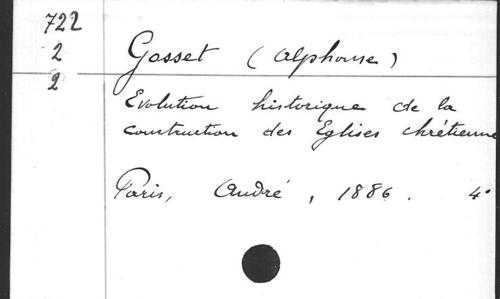 722
2
2
Gosset (Alphonse)
Evolution historique de la
construction des Eglises chrétienne
Paris, André, 1886. 4°